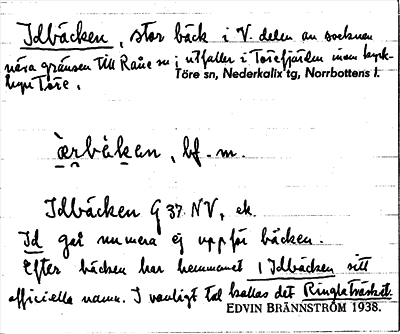 Idbäcken, stor bäck i V. delen av socknen
nära gränsen till Råne sn; utfaller i Törefjärden inom kyrk-
byn Töre.
Töre sn, Nederkalix tg, Norrbottens l.
ærbäkən, bf. m.
Idbäcken G 37. NV, ek.
Id går numera ej uppför bäcken.
Efter bäcken har hemmanet 1 Idbäcken sitt
officiella namn. I vanligt tal kallas det Ringlaträsket.
EDVIN BRÄNNSTRÖM 1938.